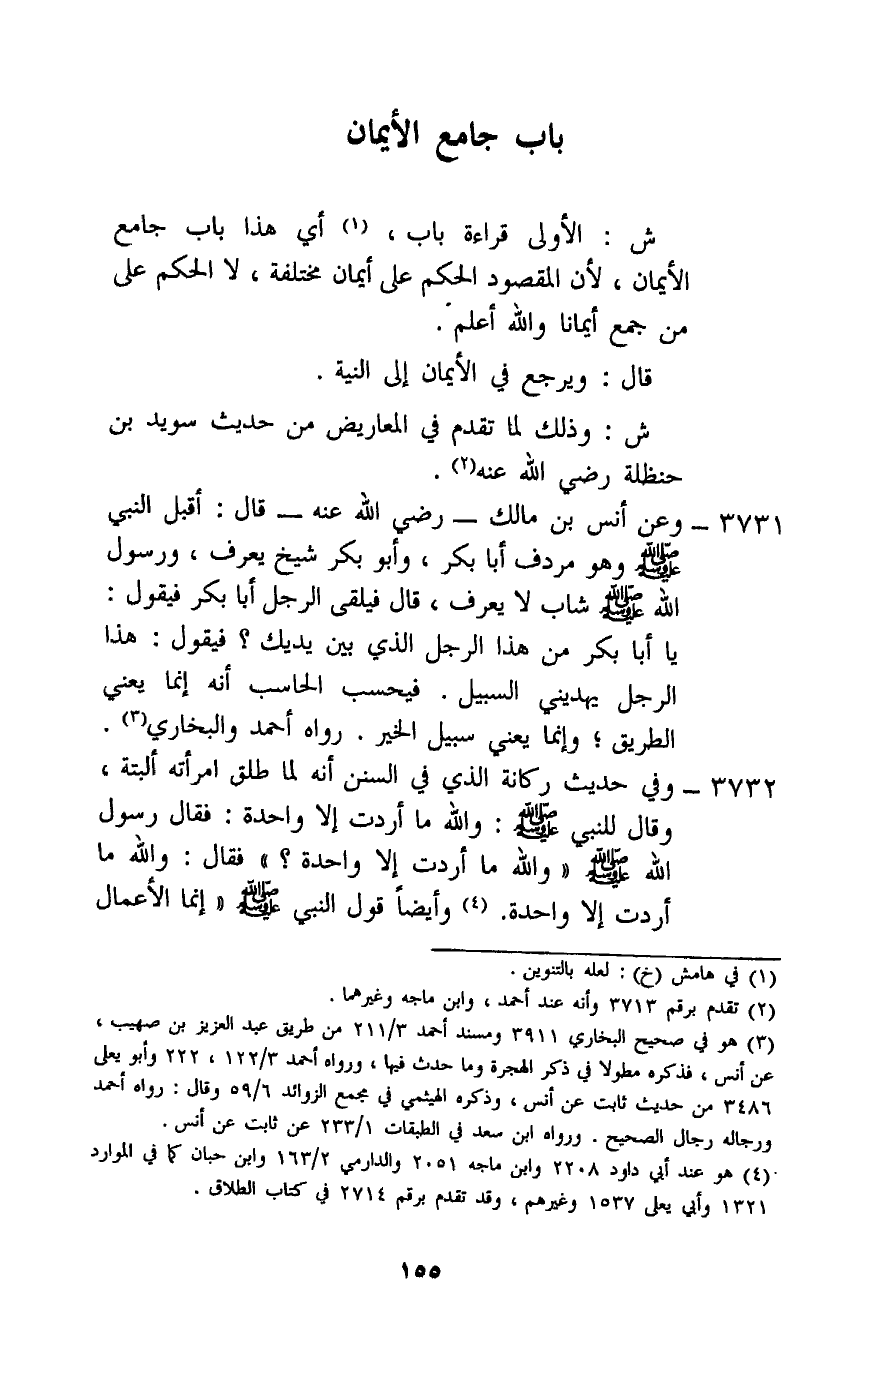 باب جامع الأيمان
ش : الأولى قراءة باب ، (١) أي هذا باب جامع
الأيمان ، لأن المقصود الحكم على أيمان مختلفة ، لا الحكم على
من جمع أيمانا والله أعلم .
قال : ويرجع في الأيمان إلى النية .
ش : وذلك لما تقدم في المعاريض من حديث سويد بن
حنظلة رضي الله عنه(٢) .
٣٧٣١ – وعن أنس بن مالك – رضي الله عنه – قال : أقبل النبي
ﷺ وهو مردف أبا بكر ، وأبو بكر شيخ يعرف ، ورسول
الله ﷺ شاب لا يعرف ، قال فيلقى الرجل أبا بكر فيقول :
يا أبا بكر من هذا الرجل الذي بين يديك ؟ فيقول : هذا
الرجل يهديني السبيل . فيحسب الحاسب أنه إنما يعني
الطريق ؛ وإنما يعني سبيل الخير . رواه أحمد والبخاري(٣) .
٣٧٣٢ – وفي حديث ركانة الذي في السنن أنه لما طلق امرأته ألبتة ،
وقال للنبي ﷺ : والله ما أردت إلا واحدة : فقال رسول
الله ﷺ « والله ما أردت إلا واحدة ؟ » فقال : والله ما
أردت إلا واحدة. (٤) وأيضاً قول النبي ﷺ « إنما الأعمال
(١) في هامش (خ) : لعله بالتنوين .
(٢) تقدم برقم ٣٧١٣ وأنه عند أحمد ، وابن ماجه وغيرهما .
(٣) هو في صحيح البخاري ٣٩١١ ومسند أحمد ٢١١/٣ من طريق عبد العزيز بن صهيب ،
عن أنس ، فذكره مطولا في ذكر الهجرة وما حدث فيها ، ورواه أحمد ١٢٢/٣ ، ٢٢٢ وأبو يعلى
٣٤٨٦ من حديث ثابت عن أنس ، وذكره الهيثمي في مجمع الزوائد ٥٩/٦ وقال : رواه أحمد
ورجاله رجال الصحيح . ورواه ابن سعد في الطبقات ٢٣٣/١ عن ثابت عن أنس .
(٤) هو عند أبي داود ٢٢٠٨ وابن ماجه ٢٠٥١ والدارمي ١٦٣/٢ وابن حبان كما في الموارد
١٣٢١ وأبي يعلى ١٥٣٧ وغيرهم ، وقد تقدم برقم ٢٧١٤ في كتاب الطلاق .
١٥٥